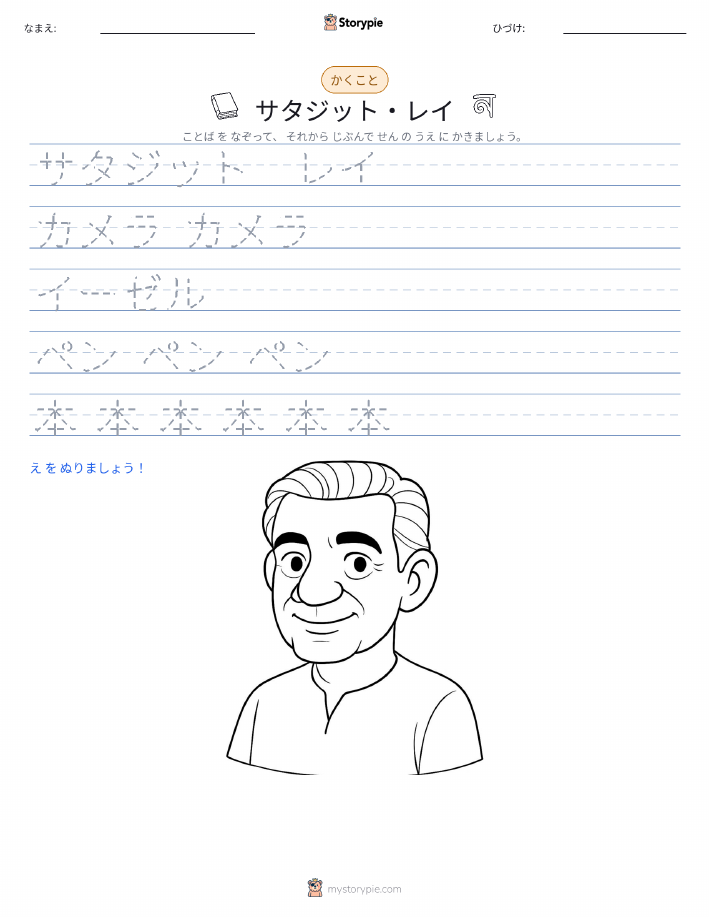 なまえ: Storypie ひづけ:
かくこと
サタジット・レイ ন
ことば を なぞって、 それから じぶんで せん の うえ に かきましょう。
サタジット レイ
カメラ カメラ
イーゼル
ペン ペン ペン
本 本 本 本 本 本
え を ぬりましょう！
mystorypie.com